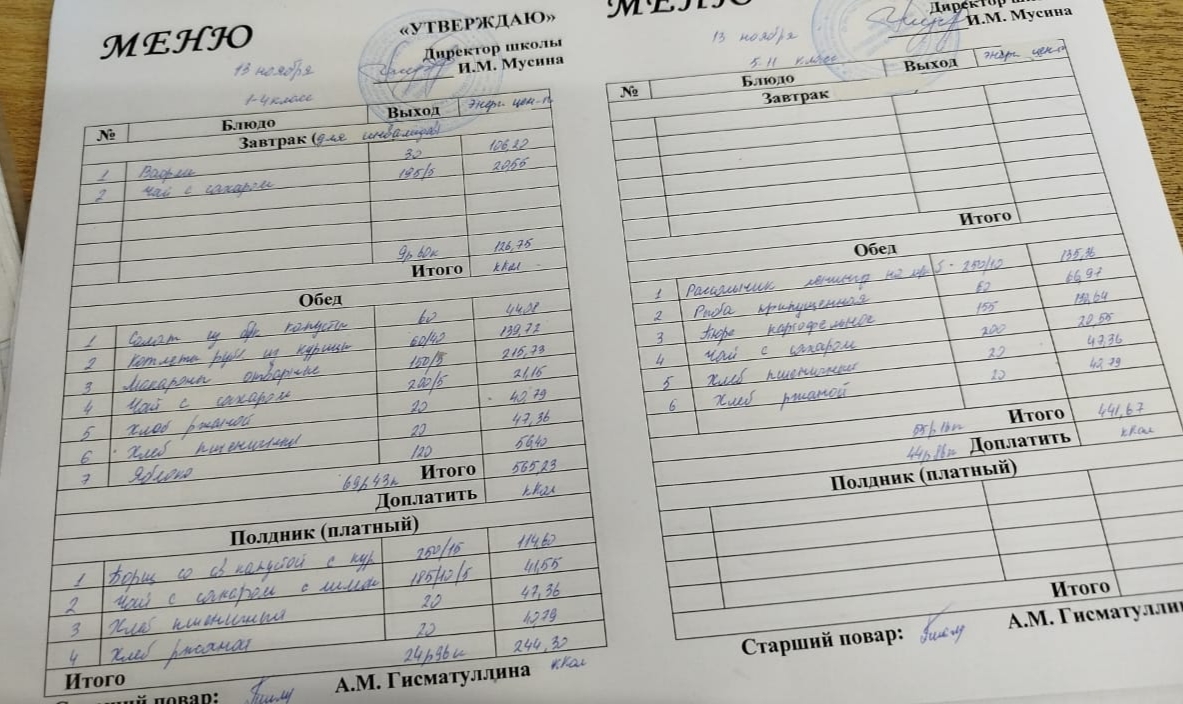 МЕНЮ
«УТВЕРЖДАЮ»
Директор школы
И.М. Мусина
13 ноября
1-4 класс
№ Блюдо Выход Энерг. цен-ть
Завтрак (для инвалидов)
1 Вафли 30 106,20
2 Чай с сахаром 195/5 20,55
9р 30к 126,75
Итого ккал
Обед
1 Салат из св капусты 60 44,08
2 Котлеты руб из курицы 60/40 139,72
3 Макароны отварные 150/5 215,73
4 Чай с сахаром 200/5 21,15
5 Хлеб ржаной 20 40,79
6 Хлеб пшеничный 20 47,36
7 Яблоко 120 56,40
69р 43к Итого 565,23
Доплатить ккал
Полдник (платный)
1 Борщ со св капустой с кур 250/15 114,60
2 Чай с сахаром с лимон 185/10/5 41,55
3 Хлеб пшеничный 20 47,36
4 Хлеб ржаной 20 40,79
Итого 24р 96к 244,30
ккал
Старший повар: А.М. Гисматуллина
МЕНЮ
Директор
И.М. Мусина
13 ноября
5-11 класс
№ Блюдо Выход Энерг. цен-ть
Завтрак
Итого
Обед
1 Рассольник ленингр на 250/10 135,36
2 Рыба припущенная 60 66,97
3 Пюре картофельное 155
4 Чай с сахаром 200 20,55
5 Хлеб пшеничный 20 47,36
6 Хлеб ржаной 20 40,79
55р 18к Итого 441,67
44р 86к Доплатить ккал
Полдник (платный)
Итого
Старший повар: А.М. Гисматуллин